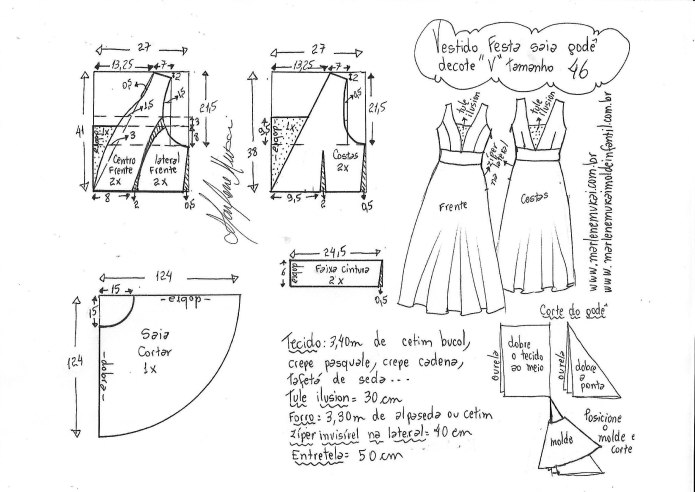 Vestido Festa saia godê
decote "V" tamanho 46
27
13,25
7
2
0,5
1,5
21,5
3
8
41
dobra
1x
3
Centro
Frente
2x
lateral
Frente
2x
8
2
0,5
27
13,25
7
2
1,5
21,5
38
9,5
dobra
1x
Costas
2x
9,5
2
0,5
tule
ilusion
tule
ilusion
zíper
na lateral
Frente
Costas
www.marlenemukai.com.br
www.marlenemukaimoldeinfantil.com.br
24,5
6
dobra
Faixa Cintura
2x
0,5
124
15
dobra
15
124
dobra
Saia
Cortar
1x
Tecido: 3,40m de cetim bucol,
crepe pasquale, crepe cadena,
Tafetá de seda...
Tule ilusion = 30 cm
Forro: 3,30m de alpaseda ou cetim
zíper invisível na lateral = 40 cm
Entretela = 50 cm
Corte do godê
ourela
dobre
o tecido
ao meio
ourela
dobre
a
ponta
molde
Posicione
o
molde e
corte